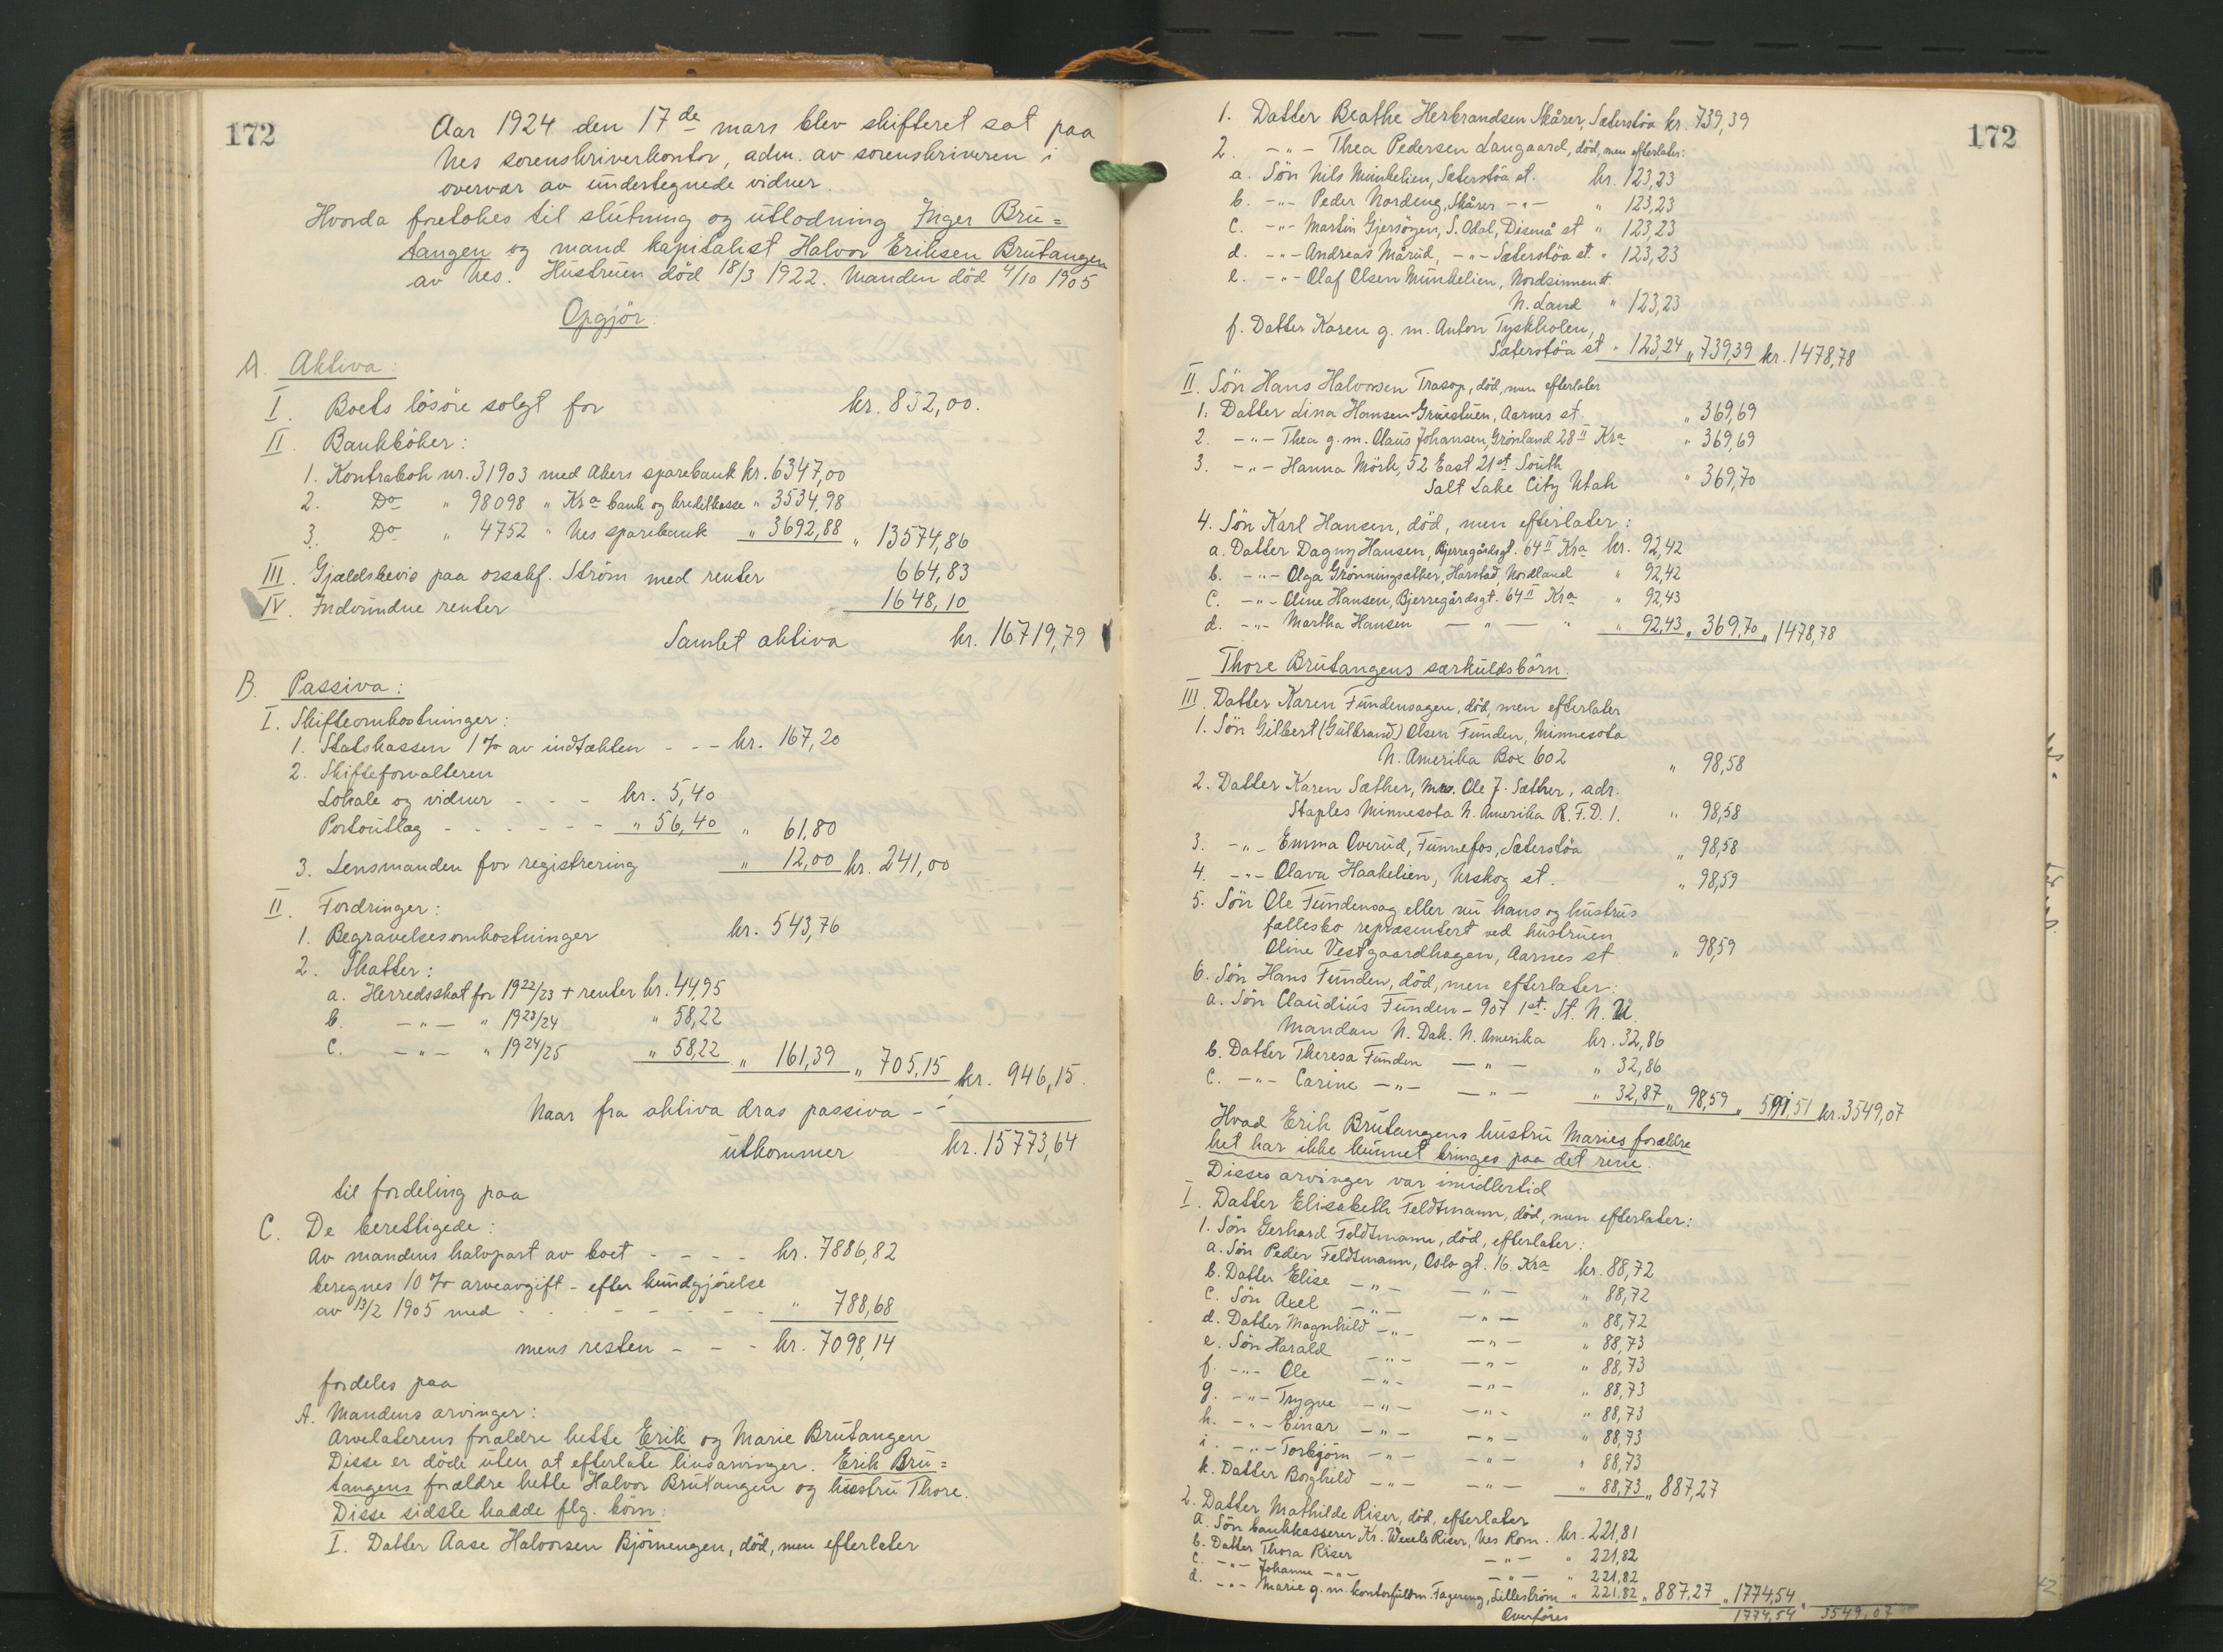 172
Aar 1924 den 17de mars blev skifteret sat paa
Nes sorenskriverkontor, adm. av sorenskriveren i
overvær av undertegnede vidner.
Hvorda foretokes til slutning og utlodning Inger Bru=
tangen og mand kapitalist Halvor Eriksen Brutangen
av Nes. Hustruen död 18/3 1922. Manden död 4/10 1905
Opgjör.
A. Aktiva:
I. Boets lösöre solgt for kr. 832,00.
II. Bankböker:
1. Kontrabok nr. 31903 med Akers sparebank kr. 6347,00
2. Do " 98098 " Kra bank og kreditkasse " 3534,98
3. Do " 4752 " Nes sparebank " 3692,88 " 13574,86
III. Gjældsbevis paa ossakf. Ström med renter 664,83
IV. Indvundne renter 1648,10
Samlet aktiva kr. 16719,79
B. Passiva:
I. Skifteomkostninger:
1. Statskassen 1% av indtækten - - - kr. 167,20
2. Skifteforvalteren
Lokale og vidner - - - kr. 5,40
Portoutlæg - - - - - - " 56,40 " 61,80
3. Lensmanden for registrering " 12,00 kr. 241,00
II. Fordringer:
1. Begravelsesomkostninger kr. 543,76
2. Skatter:
a. Herredsskat for 1922/23 + renter kr. 44,95
b. -"- " 1923/24 " 58,22
c. -"- " 1924/25 " 58,22 " 161,39 " 705,15 kr. 946,15.
Naar fra aktiva dras passiva - -
utkommer kr. 15773,64
til fordeling paa
C. De berettigede:
Av mandens halvpart av boet - - - - kr. 7886,82
beregnes 10% arveavgift - efter kundgjörelse
av 13/2 1905 med - - - - - - " 788,68
mens resten - - - kr. 7098,14
fordeles paa
A. Mandens arvinger:
Arvelaterens forældre hette Erik og Marie Brutangen
Disse er döde uten at efterlate livsarvinger. Erik Bru=
tangens forældre hette Halvor Brutangen og hustru Thore.
Disse sidste hadde flg. börn:
I. Datter Aase Halvorsen Björnengen, död, men efterlater
172
1. Datter Beathe Herbrandsen Skårer, Sæterstöa kr. 739,39
2. -"- Thea Pedersen Langaard, död, men efterlater:
a. Sön Nils Munkelien, Sæterstöa st. kr. 123,23
b. -"- Peder Nordeng, Skårer -"- " 123,23
c. -"- Martin Gjersöyen, S. Odal, Disenå st " 123,23
d. -"- Andreas Mårud, -"- Sæterstöa st. " 123,23
e. -"- Olaf Olsen Munkelien, Nordsinnen st.
N. Land " 123,23
f. Datter Karen g. m. Anton Tyskholen,
Sæterstöa st " 123,24 " 739,39 kr. 1478,78
II. Sön Hans Halvorsen Trasop, död, men efterlater
1. Datter Lina Hansen Gruestuen, Aarnes st. " 369,69
2. -"- Thea g. m. Olaus Johansen, Grönland 28 II Kra " 369,69
3. -"- Hanna Mörk, 52 East 21st South
Salt Lake City Utah " 369,70
4. Sön Karl Hansen, död, men efterlater:
a. Datter Dagny Hansen, Bjerregårdsgt. 64 II Kra kr. 92,42
b. -"- Olga Grönningsæther, Harstad, Nordland " 92,42
c. -"- Oline Hansen, Bjerregårdsgt. 64 II Kra " 92,43
d. -"- Martha Hansen - " - " " 92,43 " 369,70 " 1478,78
Thore Brutangens særkuldsbörn.
III. Datter Karen Fundensagen, död, men efterlater
1. Sön Gilbert (Gulbrand) Olsen Funden, Minnesota
N. Amerika Box 602 " 98,58
2. Datter Karen Sæther, Mrs. Ole J. Sæther, adr.
Staples Minnesota N. Amerika R.F.D. 1. " 98,58
3. -"- Emma Overud, Funnefos, Sæterstöa " 98,58
4. -"- Olava Haakelien, Urskog st. " 98,59
5. Sön Ole Fundensag eller nu hans og hustrus
fællesbo repræsentert ved hustruen
Oline Vestgaardhagen, Aarnes st. " 98,59
6. Sön Hans Funden, död, men efterlater:
a. Sön Claudius Funden - 907 1st. St. N. W.
Mandan N. Dak. N. Amerika kr. 32,86
b. Datter Theresa Funden -"- " 32,86
c. -"- Carine -"- -"- " 32,87 " 98,59 " 591,51 kr. 3549,07
Hvad Erik Brutangens hustru Maries forældre
het har ikke kunnet bringes paa det rene.
Disses arvinger var imidlertid
I. Datter Elisabeth Feldtmann, död, men efterlater:
1. Sön Gerhard Feldtmann, död, efterlater:
a. Sön Peder Feldtmann, Oslo gt. 16. Kra kr. 88,72
b. Datter Elise -"- -"- " 88,72
c. Sön Axel -"- -"- " 88,72
d. Datter Magnhild -"- -"- " 88,73
e. Sön Harald -"- -"- " 88,73
f. -"- Ole -"- -"- " 88,73
g. -"- Trygve -"- -"- " 88,73
h. -"- Einar -"- -"- " 88,73
i. -"- Torbjörn -"- -"- " 88,73
k. Datter Borghild -"- -"- " 88,73 " 887,27
2. Datter Mathilde Riser, död, efterlater
a. Sön bankkasserer Kr. Wesels Riser, Nes Rom. kr. 221,81
b. Datter Thora Riser -"- " 221,82
c. -"- Johanne -"- -"- " 221,82
d. -"- Marie g. m. kontorfuldm. Fagereng, Lilleström " 221,82 " 887,27 " 1774,54
Overföres 1774,54 3549,07